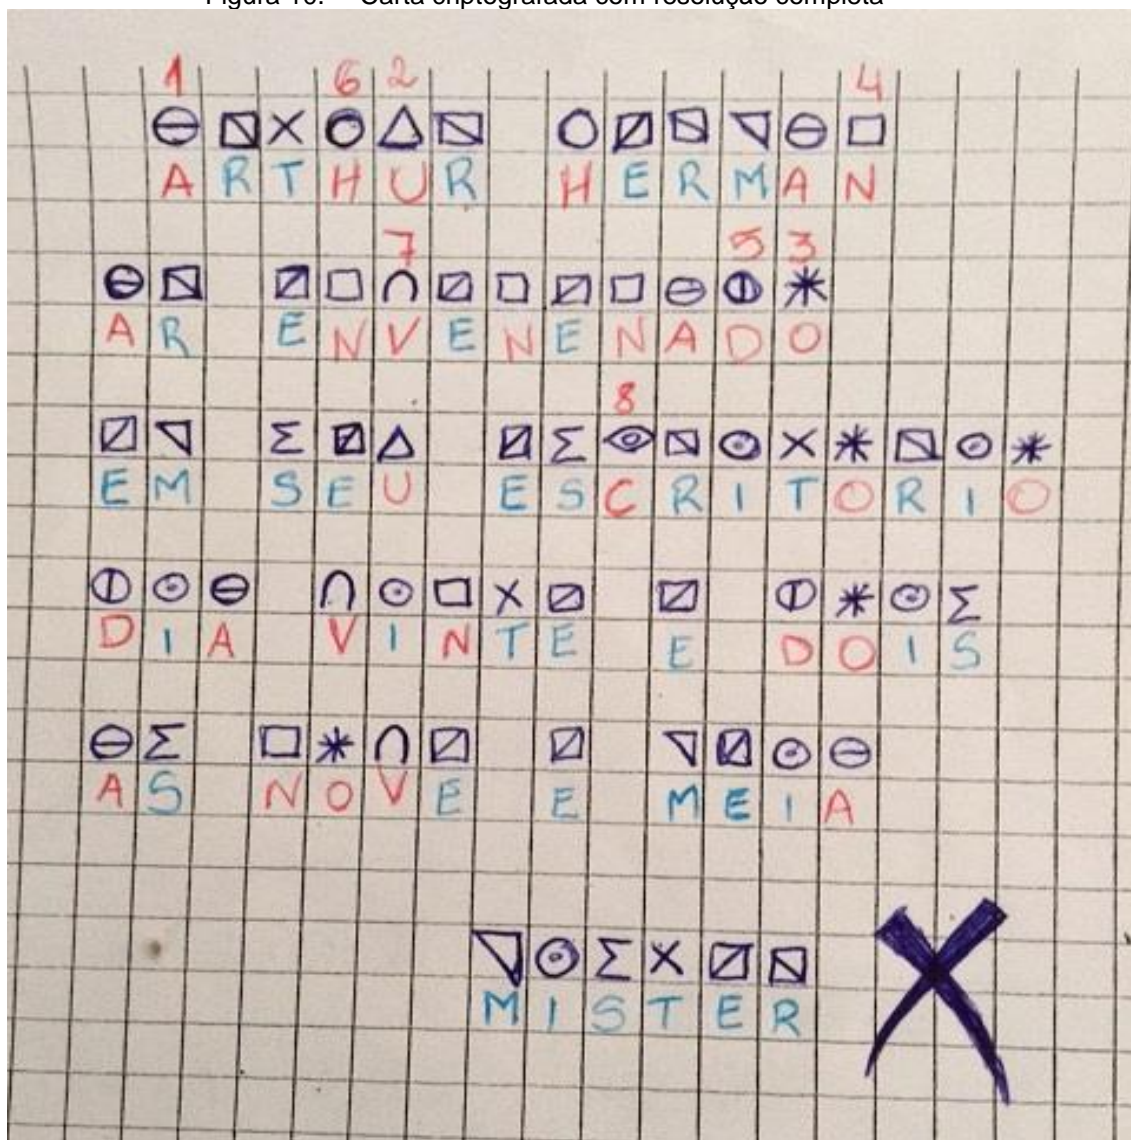 Figura 10. Carta criptografada com resolução completa
1 6 2 4
ARTHUR HERMAN
7 5 3
AR ENVENENADO
8
EM SEU ESCRITORIO
DIA VINTE E DOIS
AS NOVE E MEIA
MISTER X